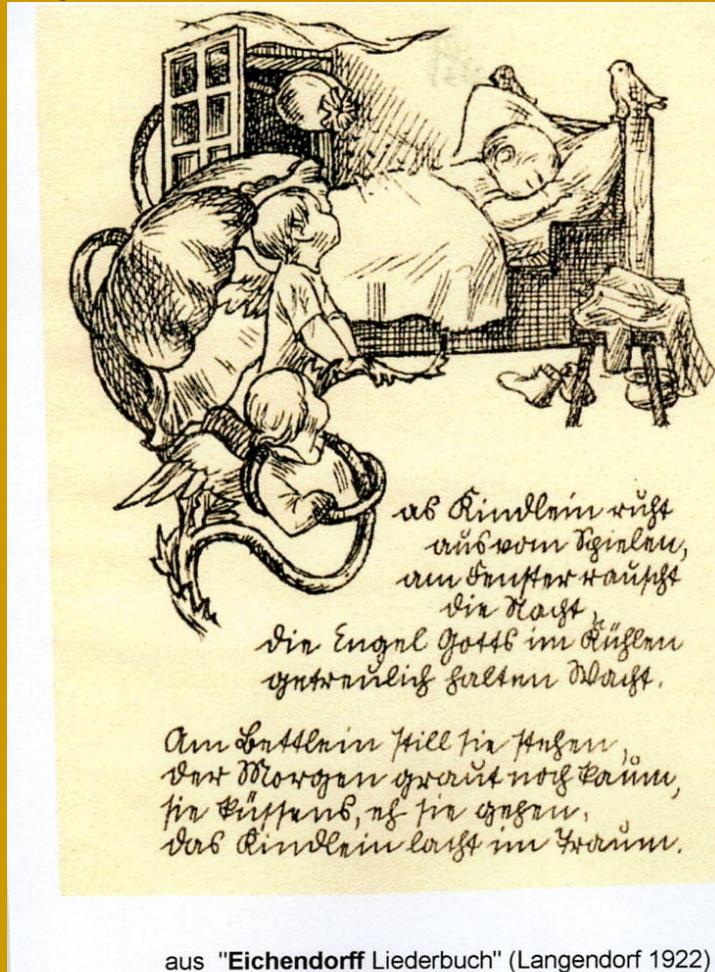 as Kindlein ruht
aus vom Spielen,
am Fenster rauscht
die Nacht,
die Engel Gotts im Kühlen
getreulich halten Wacht.
Am Bettlein still sie stehen,
der Morgen graut noch kaum,
sie küssens, eh sie gehen,
das Kindlein lacht im Traum.
aus "Eichendorff Liederbuch" (Langendorf 1922)